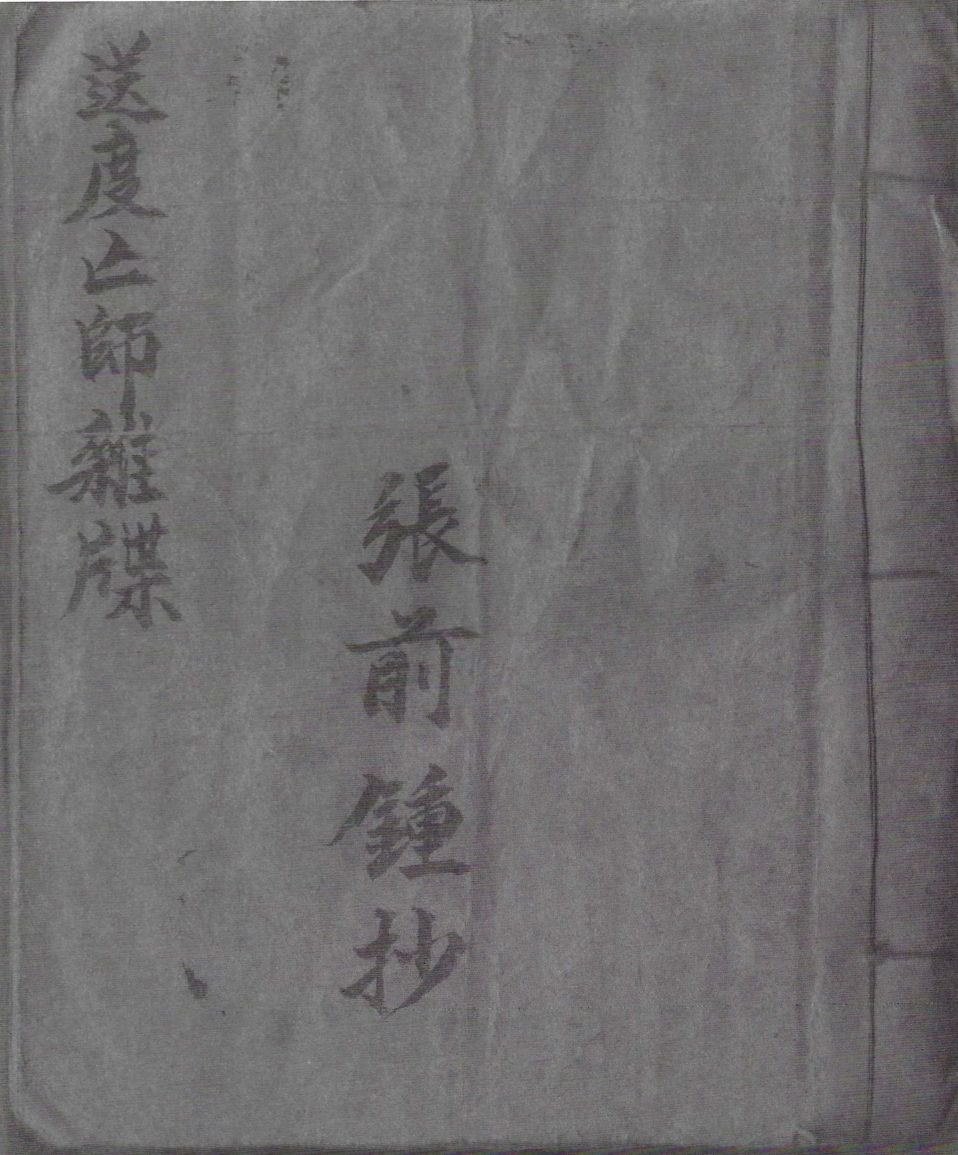 張前鍾抄
送度亡師雜牒